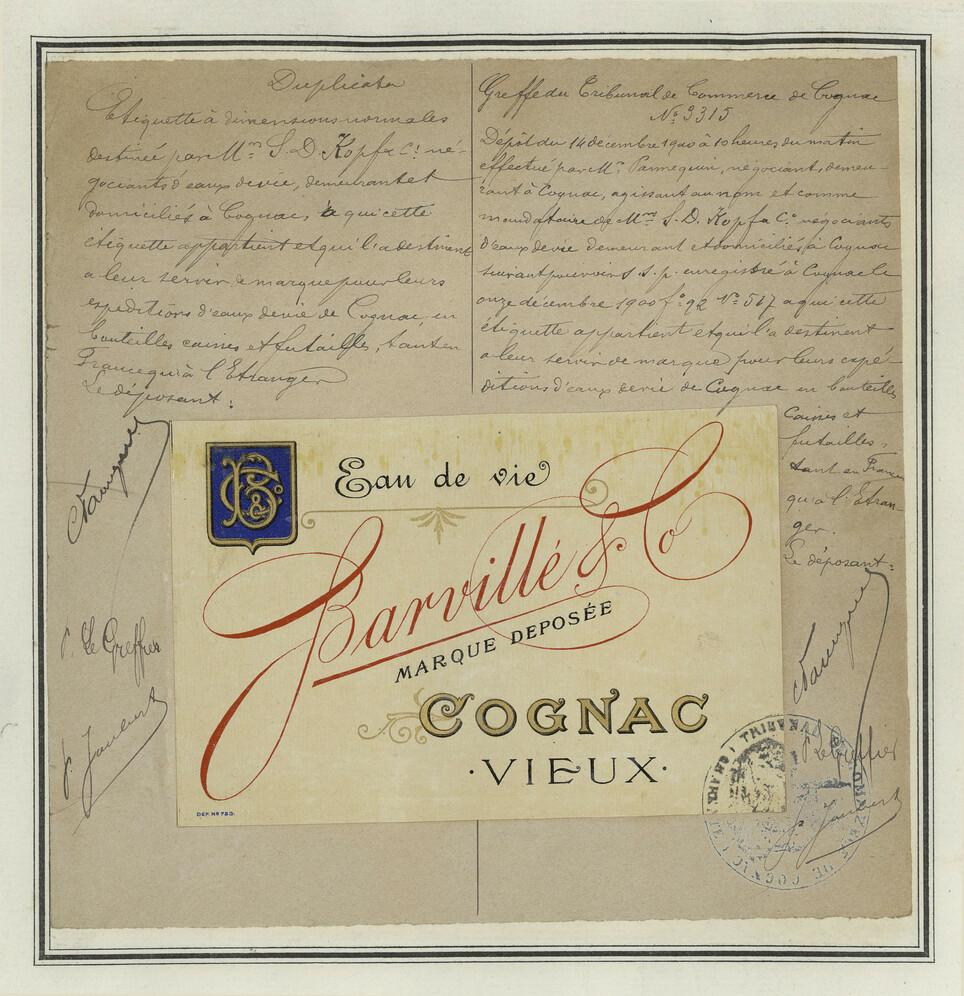 Duplicata
Etiquette à dimensions normales
destinée par M.rs S. D. Kopf & C.ie né-
gociants d'eaux de vie, demeurant et
domiciliés à Cognac, à qui cette
étiquette appartient et qui l'a destinent
a leur servir de marque pour leurs
expeditions d'eaux de vie de Cognac, en
bouteilles caisses et futailles, tant en
France qu'à l'Etranger
Le déposant :
P. Le Greffier
Greffe du Tribunal de Commerce de Cognac
N° 3315
Dépôt du 14 décembre 1900 à 10 heures du matin
effectué par M.r Pannequin, négociant, demeu-
rant à Cognac, agissant au nom et comme
mandataire de M.rs S. D. Kopf & C.o négociants
d'eaux de vie demeurant et domiciliés à Cognac
suivant pouvoir s. s. p. enregistré à Cognac le
onze décembre 1900 f.o 92 N.o 567 a qui cette
étiquette appartient et qui l'a destinent
a leur servir de marque pour leurs expé-
ditions d'eaux de vie de Cognac en bouteilles
Caisses et
futailles,
tant en France
qu'à l'Etran-
ger.
Le déposant :
P Le Greffier
B & Co
Eau de vie
Barvillé & Co
MARQUE DEPOSÉE
COGNAC
·VIEUX·
DEP. No 733.
TRIBUNAL DE COMMERCE DE COGNAC